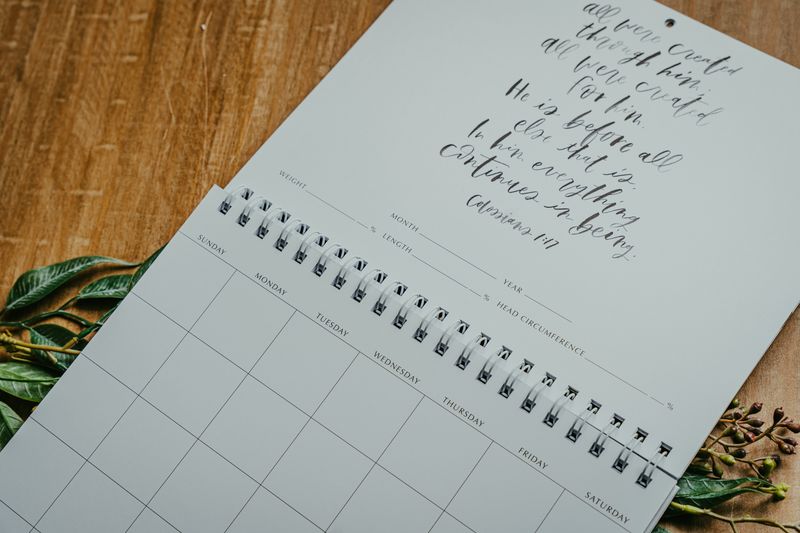 all were created
through him;
all were created
for him.
He is before all
else that is.
In him everything
continues in being.
Colossians 1:17
MONTH YEAR
WEIGHT % LENGTH % HEAD CIRCUMFERENCE %
SUNDAY MONDAY TUESDAY WEDNESDAY THURSDAY FRIDAY SATURDAY